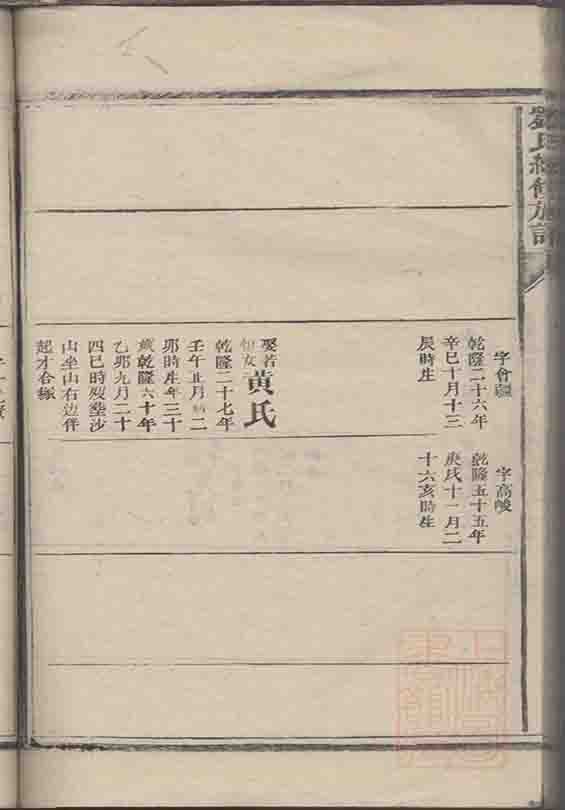 劉氏續修族譜
字會疆
乾隆二十六年
辛巳十月十三
辰時生
娶若
女黃氏
乾隆二十七年
壬午正月二
卯時生年三十
歲乾隆六十年
乙卯九月二十
四巳時歿塟沙
山坐山右边伴
起才合塚
字高峻
乾隆五十五年
庚戌十一月二
十六亥時生